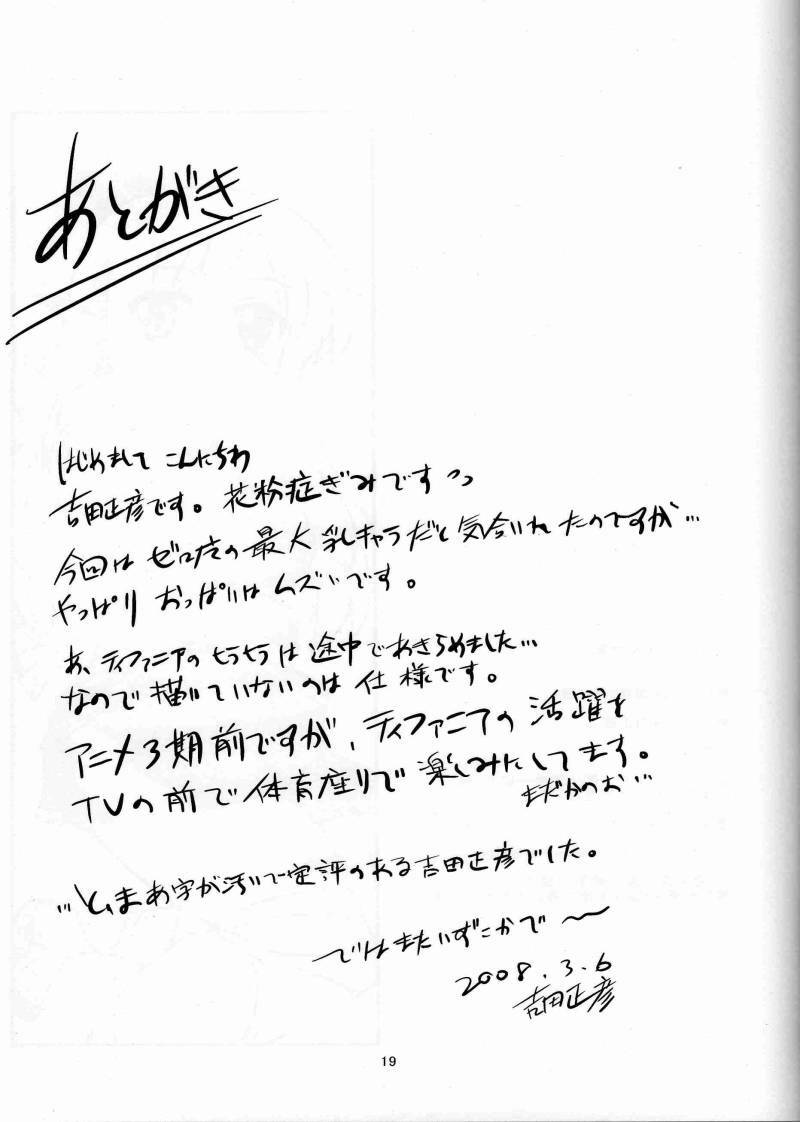 あとがき
はじめまして こんにちわ
吉田正彦です。花粉症ぎみです
今回はゼロ魔の最大乳キャラだと気合いれたのですが…
やっぱり おっぱいは ムズいです。
あ、ティファニアのヒラヒラは途中であきらめました…
なので描いていないのは仕様です。
アニメ3期前ですが、ティファニアの活躍を
TVの前で体育座りで楽しみにしてます。
まだかのお…
…と、まあ字が汚いで定評のある吉田正彦でした。
ではまたいずこかで〜
2008.3.6
吉田正彦
19